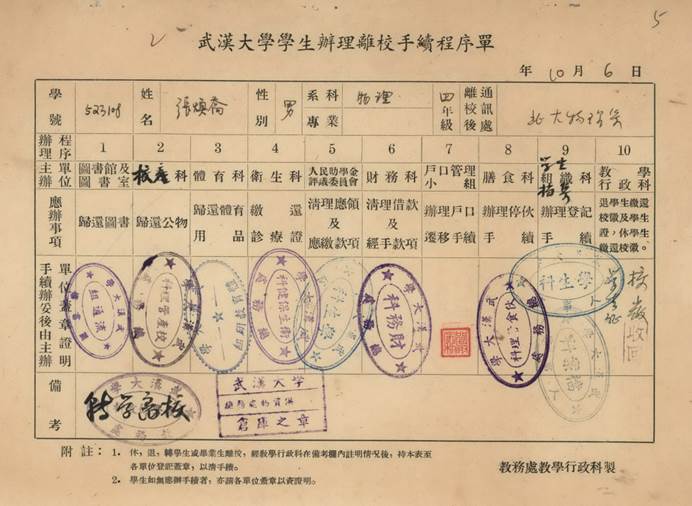 5
武漢大學學生辦理離校手續程序單
年 10 月 6 日
學號 523108 姓名 張煥喬 性別 男 系科 物理 專業 四年級 離校後通訊處 北大物理系
辦理程序 1 2 3 4 5 6 7 8 9 10
主辦單位 圖書館及圖書室 校產科 體育科 衛生科 人民助學金評議委員會 財務科 戶口管理小組 膳食科 學生組織科 教學行政科
應辦事項 歸還圖書 歸還公物 歸還體育用品 繳還診療證 清理應領及應繳款項 清理借款及經手款項 辦理戶口遷移手續 辦理停伙手續 辦理登記手續
手續辦妥後由主辦單位蓋章證明
武漢大學
流通組
武漢大學總務處
校產管理科
武漢大學總務處
衛生保健科
武漢大學總務處
財務科
武漢大學總務處
伙食管理科
學生科
備考 轉學離校
武漢大學
倉庫之章
附註：1. 休，退，轉學生或畢業生離校，經教學行政科在備考欄內註明情況後，持本表至
各單位登記蓋章，以清手續。
2. 學生如無應辦手續者，亦請各單位蓋章以資證明。
教務處教學行政科製